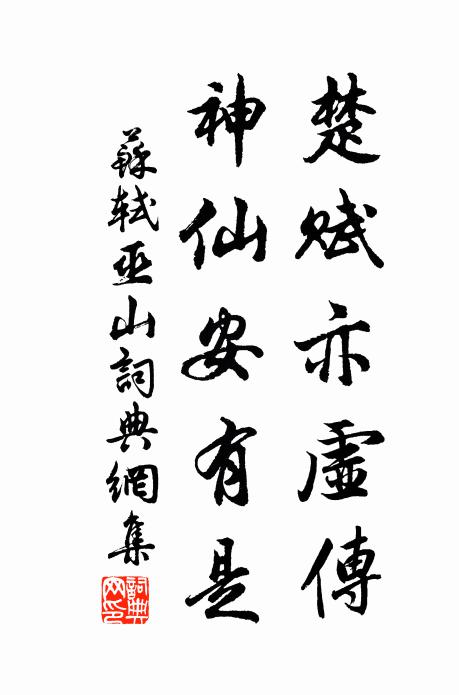 楚赋亦虛傳
神仙安有是
蘇軾巫山詞典網集
詞典網印